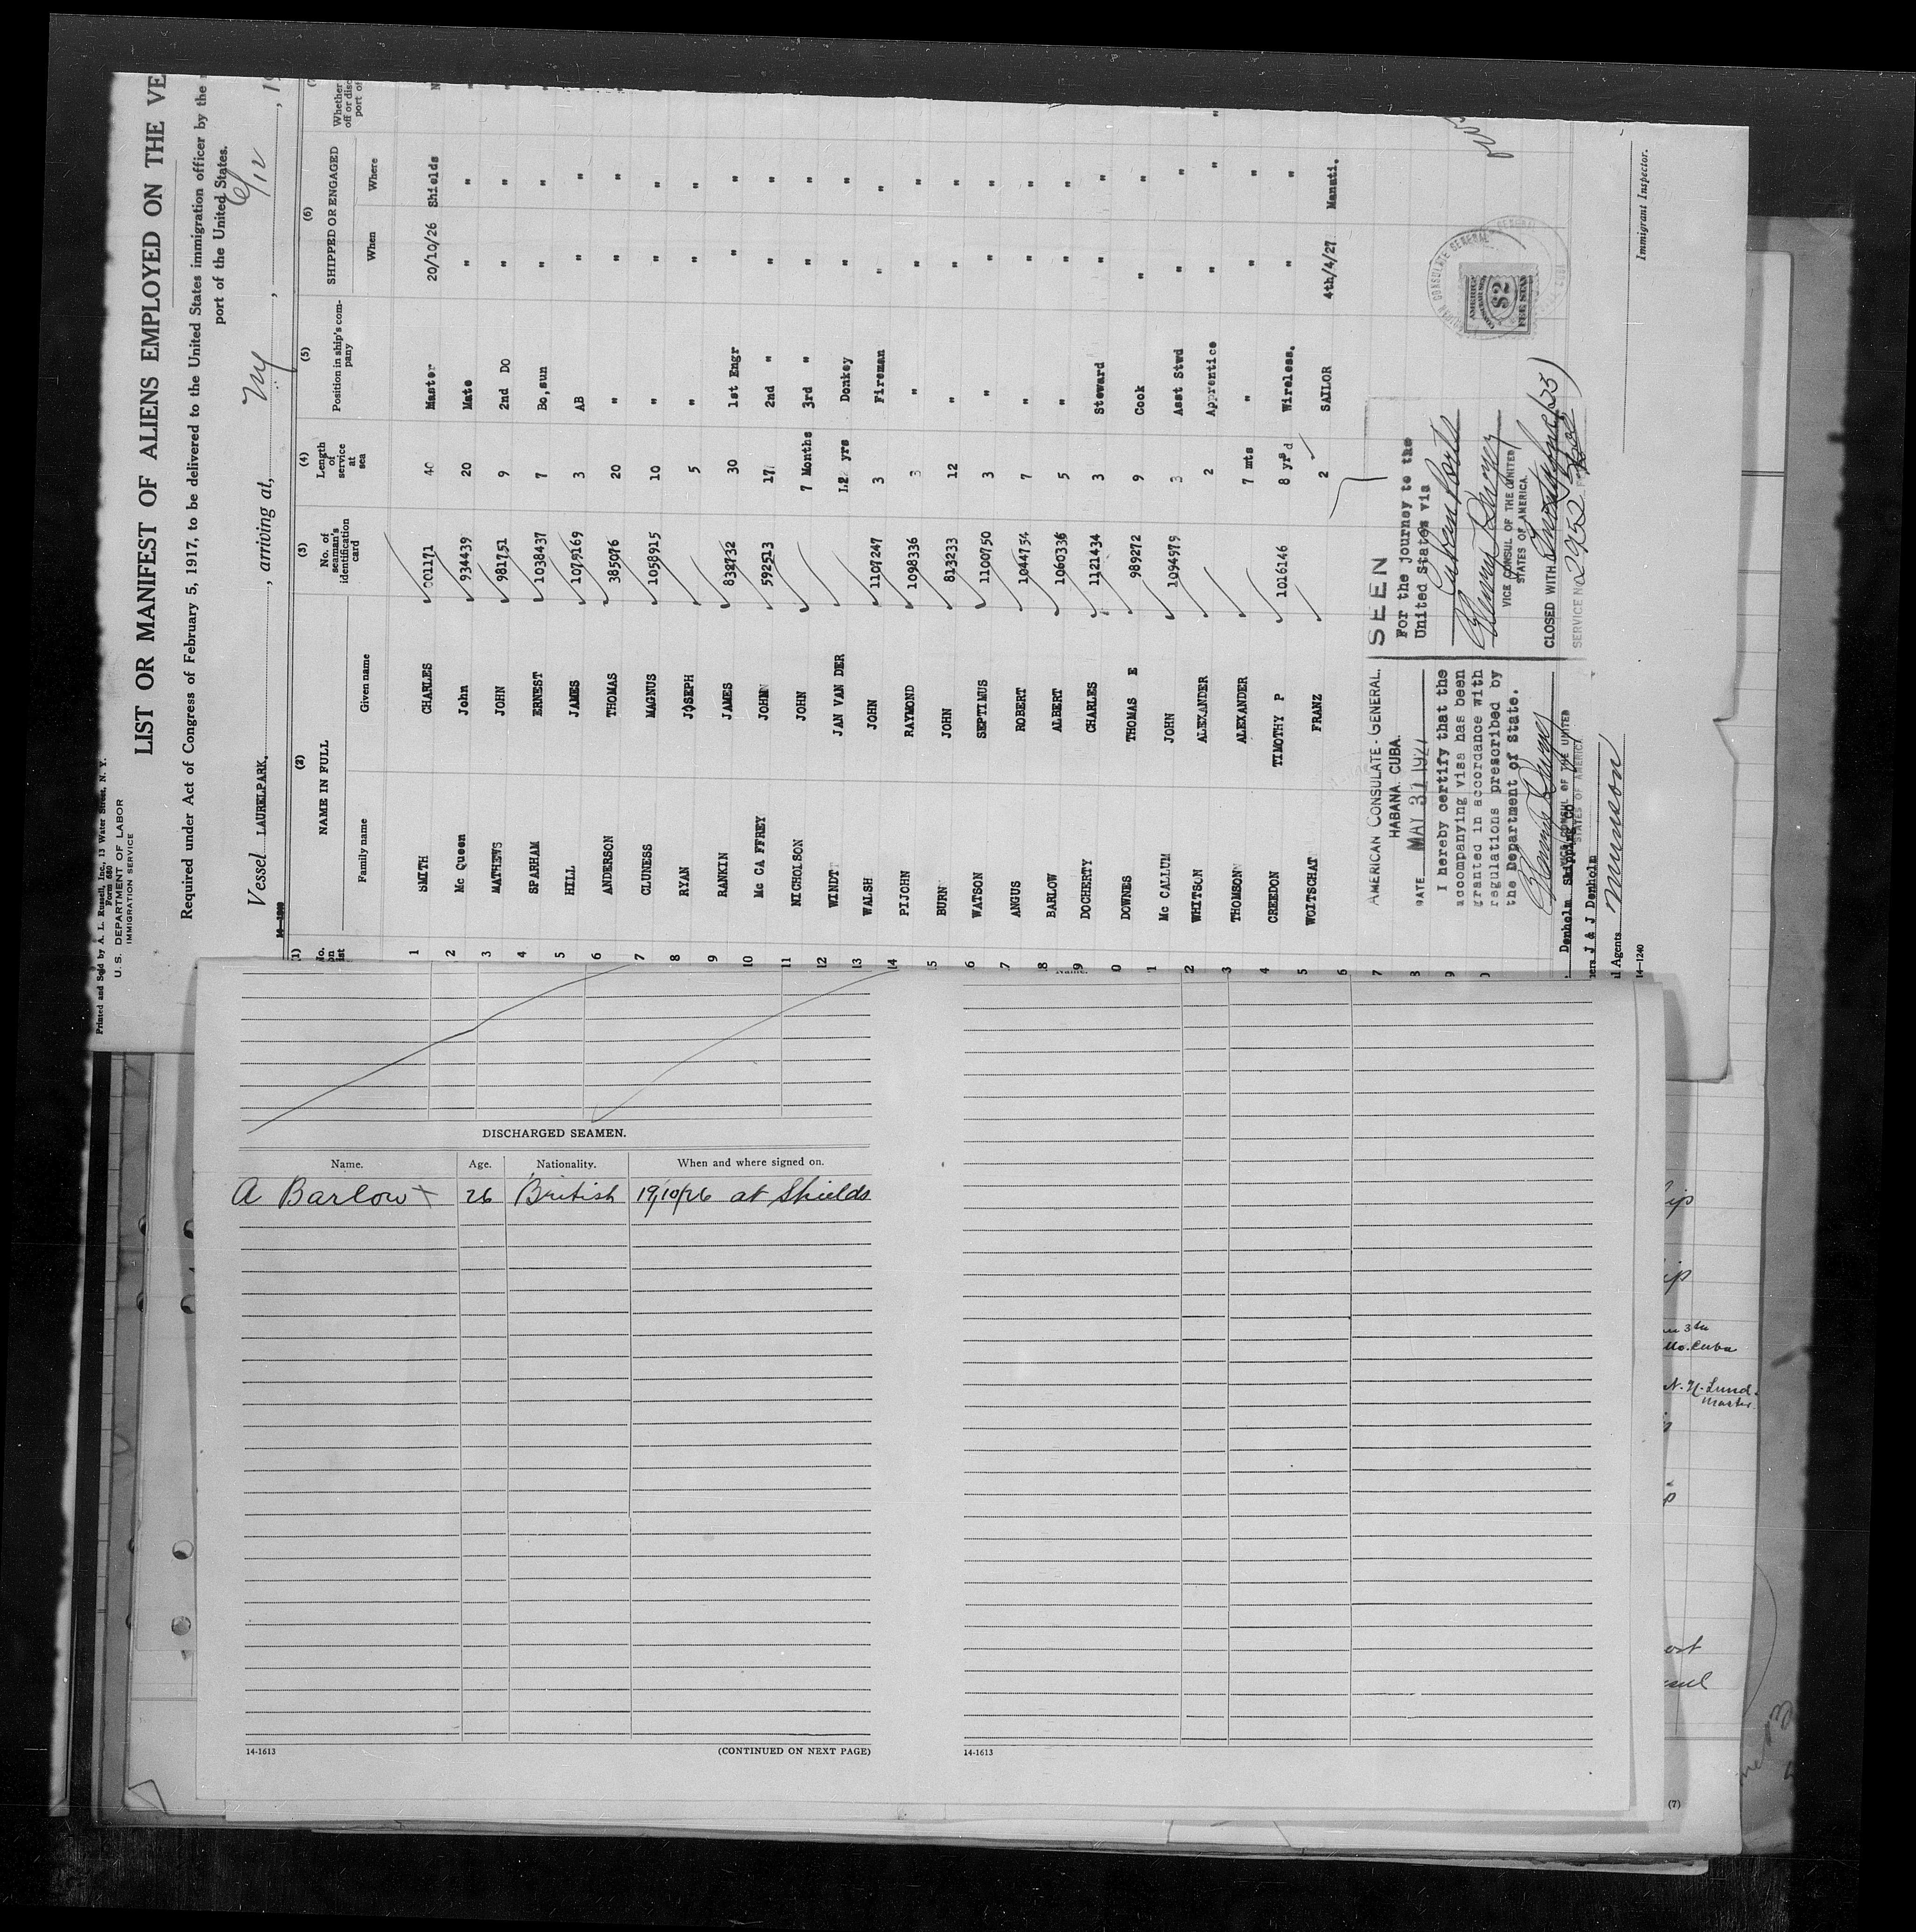 Printed and Sold by A. L. Russell, Inc., 13 Water Street, N. Y.
Form 680
U. S. DEPARTMENT OF LABOR
IMMIGRATION SERVICE
LIST OR MANIFEST OF ALIENS EMPLOYED ON THE VE
Required under Act of Congress of February 5, 1917, to be delivered to the United States immigration officer by the
port of the United States.
Vessel LAURELPARK. , arriving at, NY , 6/12 , 19
(1) (2) (3) (4) (5) (6)
No. on list NAME IN FULL No. of seaman's identification card Length of service at sea Position in ship's company SHIPPED OR ENGAGED Whether
Family name Given name When Where
1 SMITH CHARLES 40 Master 20/10/26 Shields N
2 Mc Queen John 934439 20 Mate " " "
3 MATHEWS JOHN 981751 9 2nd DO " " "
4 SPARHAM ERNEST 1038437 7 Bo,sun " " "
5 HILL JAMES 1079169 3 AB " " "
6 ANDERSON THOMAS 385076 20 " " " "
7 CLUNESS MAGNUS 1058915 10 " " "
8 RYAN JOSEPH 5 " " "
9 RANKIN JAMES 832732 30 1st Engr " "
10 Mc CA FFREY JOHN 592513 17 2nd " " "
11 NICHOLSON JOHN 7 Months 3rd " " "
12 WINDT JAN VAN DER 12 yrs Donkey " "
13 WALSH JOHN 1107247 3 Fireman " "
14 PIJOHN RAYMOND 1098336 3 " " "
5 BURN JOHN 813233 12 " " "
6 WATSON SEPTIMUS 1100750 3 " " "
7 ANGUS ROBERT 1044754 7 " " "
8 BARLOW ALBERT 1060336 5 " " "
9 DOCHERTY CHARLES 1121434 3 Steward " "
0 DOWNES THOMAS E 989272 9 Cook " "
1 Mc CALLUM JOHN 1094979 3 Asst Stwd " "
2 WHITSON ALEXANDER 2 Apprentice " " "
3 THOMSON ALEXANDER 7 mts " " "
4 CREEDON TIMOTHY P 1016146 8 yrs Wireless. " "
5 WOITSCHAT FRANZ 2 SAILOR 4th/4/27 Manati.
6
7
8
9
0
AMERICAN CONSULATE-GENERAL,
HABANA, CUBA.
DATE MAY 31 1927
I hereby certify that the
accompanying visa has been
granted in accordance with
regulations prescribed by
the Department of State.
VICE CONSUL OF THE UNITED
STATES OF AMERICA
SEEN
For the journey to the
United States via
Cuban ports
VICE CONSUL OF THE UNITED
STATES OF AMERICA.
CLOSED WITH
SERVICE NO 2952
AMERICAN
CONSULAR SERVICE
$2
FEE STAMP
Denholm Shipping Co
ners J & J Denholm
l Agents Munson
14-1240
Immigrant Inspector.
DISCHARGED SEAMEN.
Name. Age. Nationality. When and where signed on.
A Barlow x 26 British 19/10/26 at Shields
14-1613 (CONTINUED ON NEXT PAGE)
14-1613
ip
ip
3rd
Cuba
N. N. Lund.
Master.
(7)